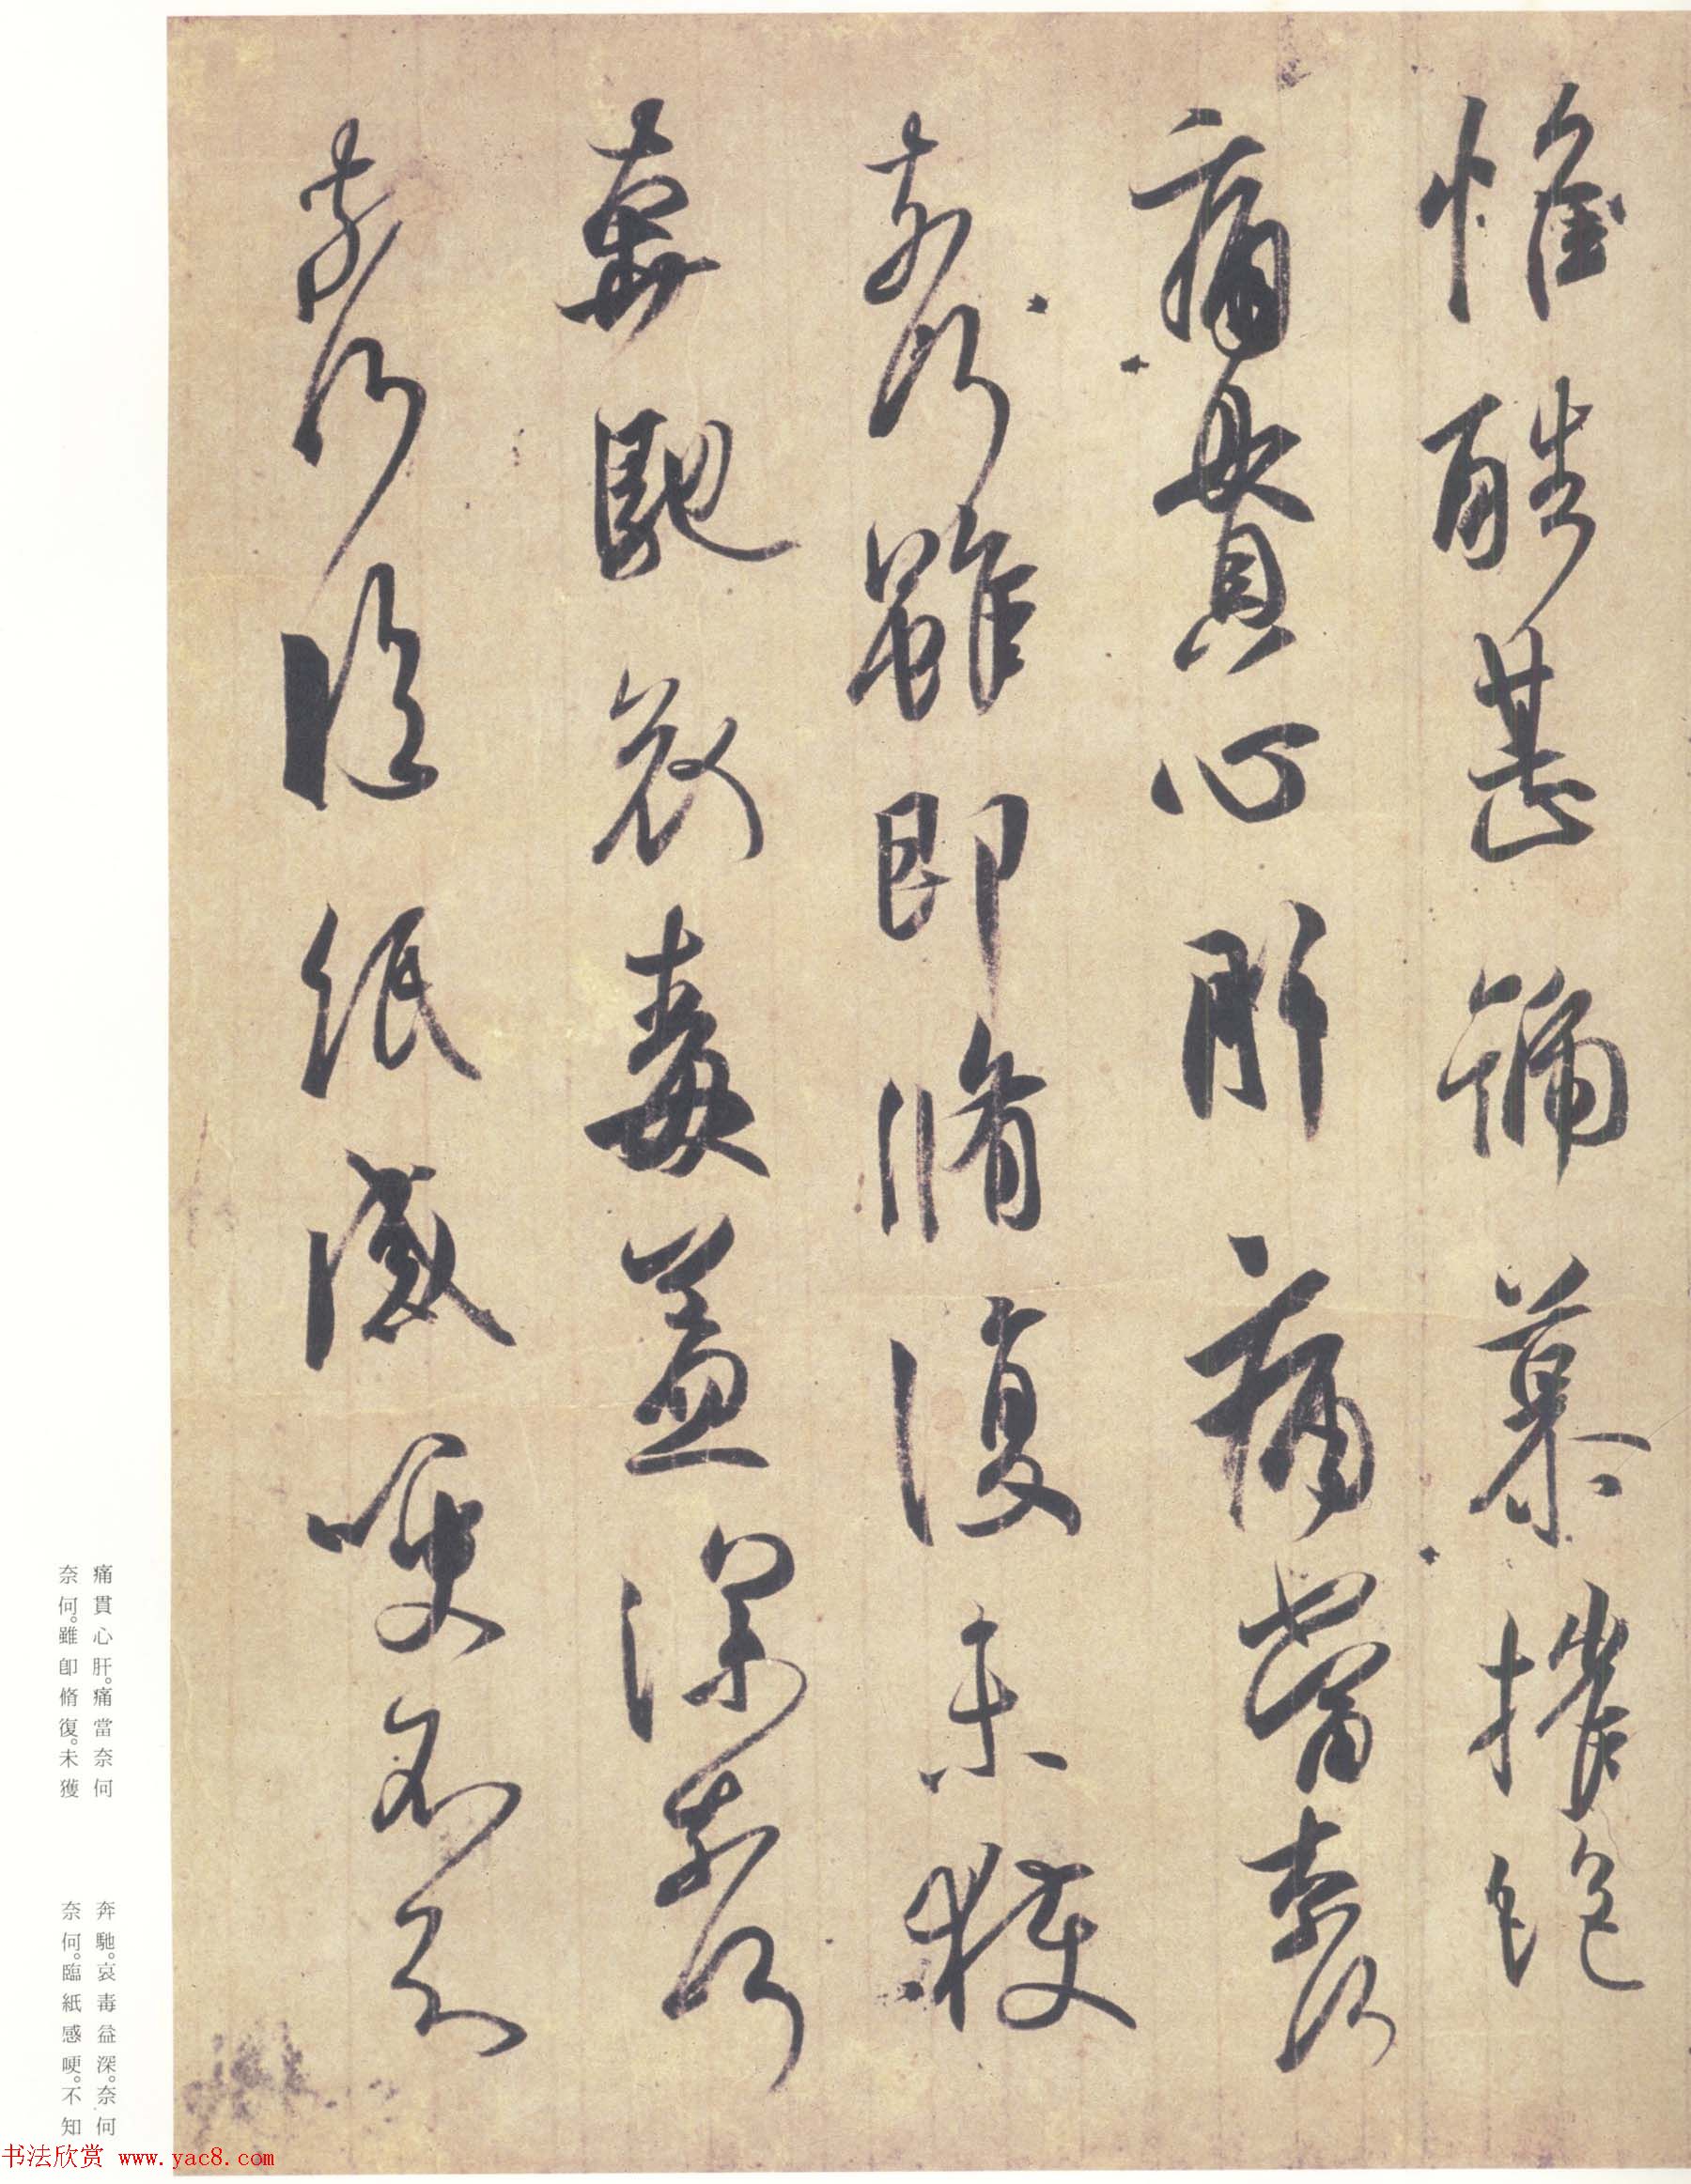 惟酷甚號慕摧絕
痛貫心肝痛當奈何
奈何雖即脩復未獲
奔馳哀毒益深奈何
奈何臨紙感哽不知
痛貫心肝。痛當奈何
奈何。雖卽脩復。未獲
奔馳。哀毒益深。奈何
奈何。臨紙感哽。不知
书法欣赏 www.yac8.com